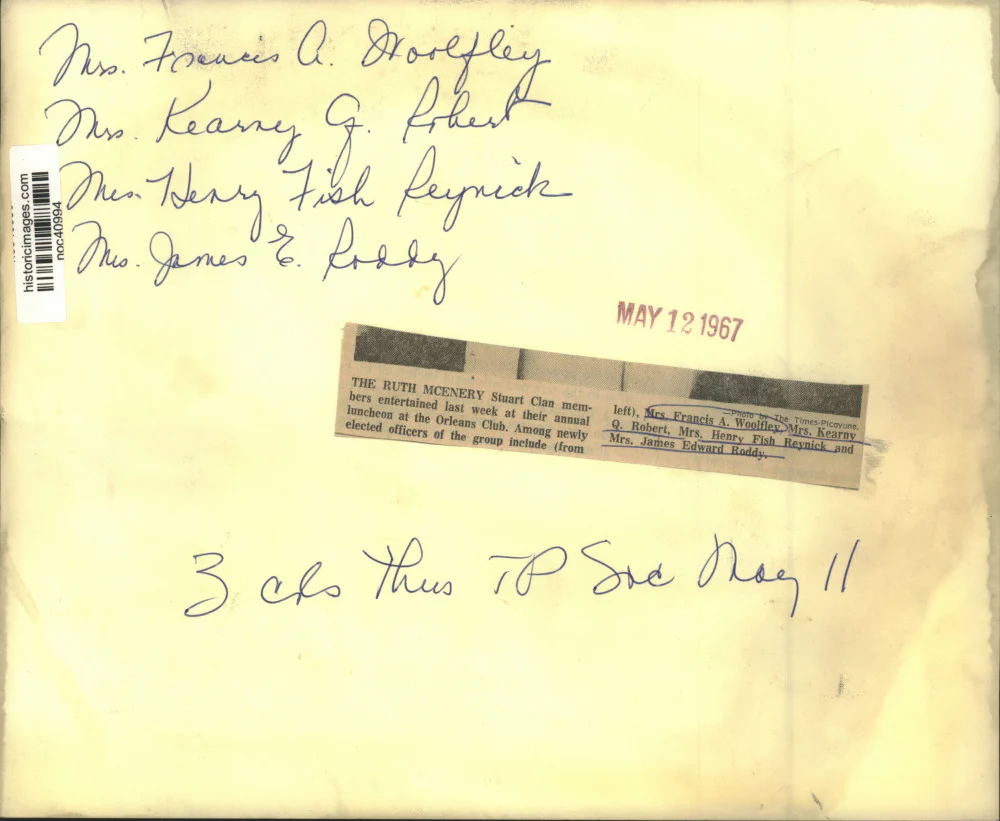 Mrs. Francis A. Woolfley
Mrs. Kearney Q. Robert
Mrs. Henry Fish Reynick
Mrs. James E. Roddy
historicimages.com
noc40994
MAY 12 1967
THE RUTH MCENERY Stuart Clan mem-
bers entertained last week at their annual
luncheon at the Orleans Club. Among newly
elected officers of the group include (from
—Photo by The Times-Picayune.
left), Mrs. Francis A. Woolfley, Mrs. Kearny
Q. Robert, Mrs. Henry Fish Reynick and
Mrs. James Edward Roddy.
3 cols Thurs TP Soc May 11